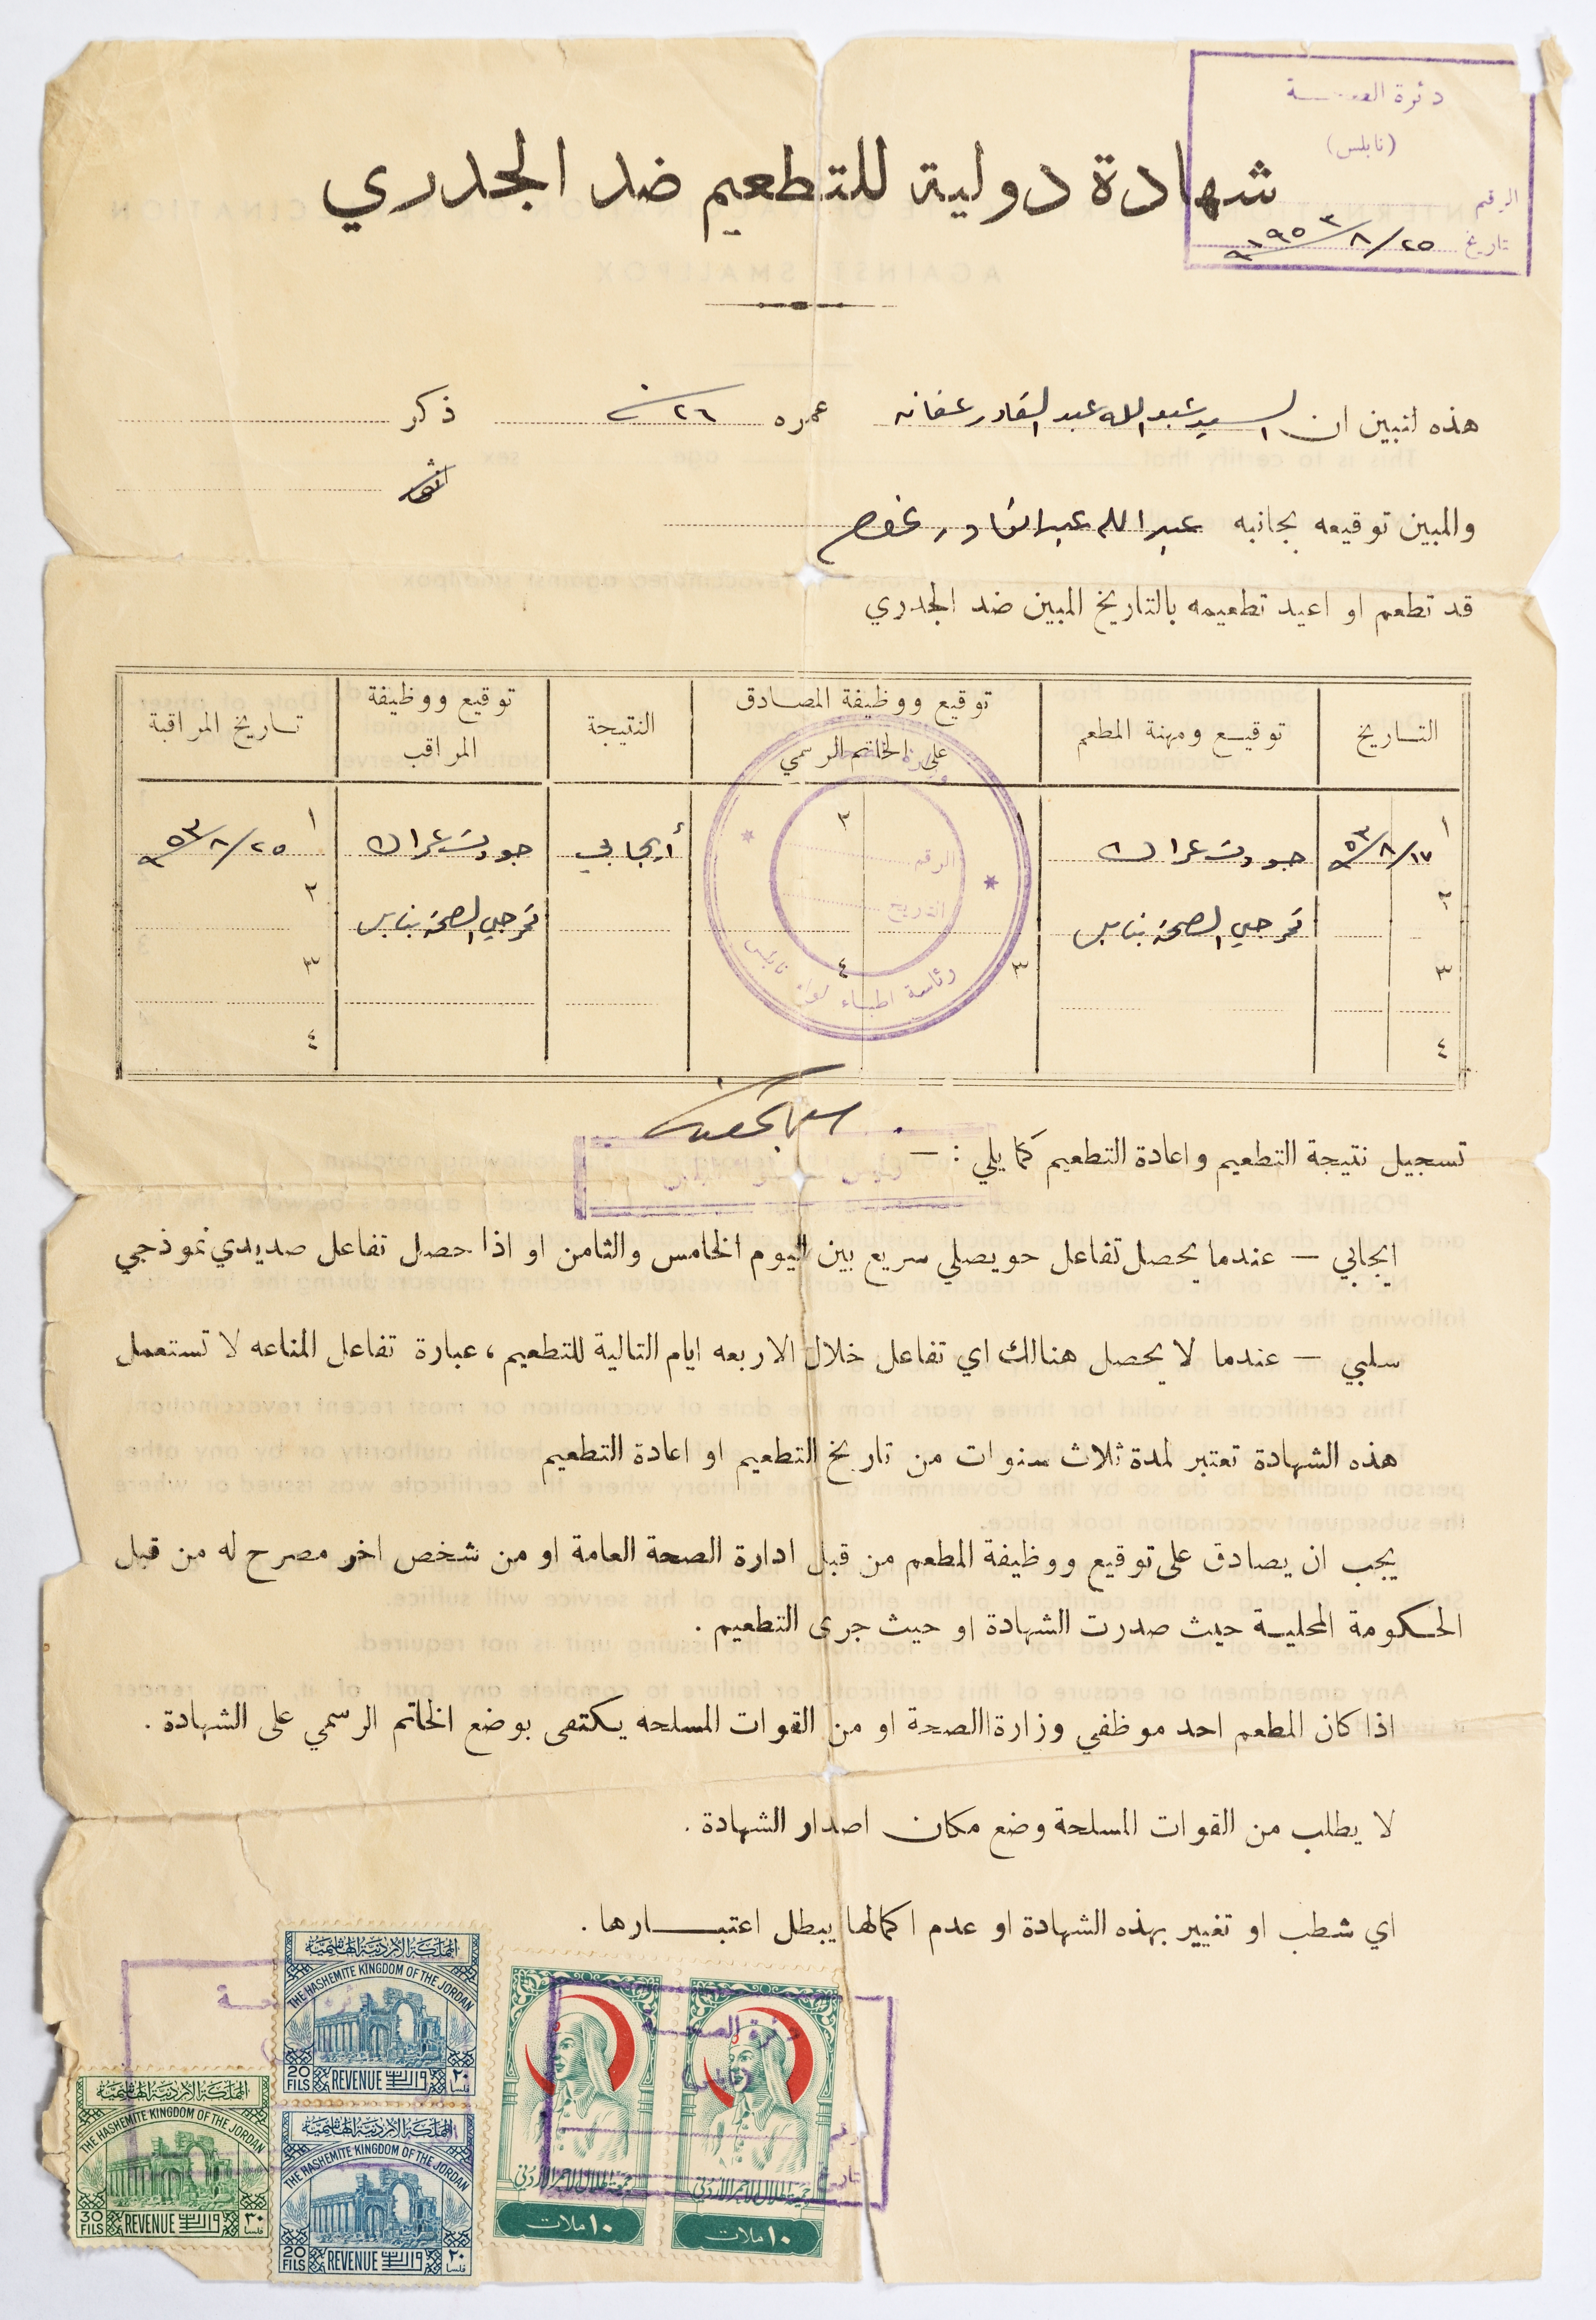 دئرة الصحـــة
(نابلس)
الرقم
تاريخ ٢٥/٨/١٩٥٣
شهادة دولية للتطعيم ضد الجدري
هذه لتبين ان السيد عبد الله عبد القادر عفانه عمره ٢٦ ذكر
انثى
والمبين توقيعه بجانبه عبد الله عبد القادر
قد تطعم او اعيد تطعيمه بالتاريخ المبين ضد الجدري
التــاريخ
توقيــع ومهنة المطعم
توقيع ووظيفة المصادق على الخاتم الرسمي
النتيجة
توقيع ووظيفة المراقب
تــاريخ المراقبة
١ ١٧/٨/٩٥٣ جودت ١ ٢ أيجابي جودت ١ ٢٥/٨/٩٥٣
٢ تمرجي الصحة بنابلس تمرجي الصحة بنابلس ٢
٣ ٣ ٤ ٣
٤ ٤
الرقم
التاريخ
رئاسة اطباء لواء نابلس
تسجيل نتيجة التطعيم واعادة التطعيم كما يلي : —
ايجابي — عندما يحصل تفاعل حويصلي سريع بين اليوم الخامس والثامن او اذا حصل تفاعل صديدي نموذجي
سلبي — عندما لا يحصل هنالك اي تفاعل خلال الاربعه ايام التالية للتطعيم ، عبارة تفاعل المناعه لا تستعمل
هذه الشهادة تعتبر لمدة ثلاث سنوات من تاريخ التطعيم او اعادة التطعيم
يجب ان يصادق على توقيع ووظيفة المطعم من قبل ادارة الصحة العامة او من شخص اخر مصرح له من قبل
الحكومة المحليــة حيث صدرت الشهادة او حيث جرى التطعيم .
اذا كان المطعم احد موظفي وزارة االصحة او من القوات المسلحه يكتفى بوضع الخاتم الرسمي على الشهادة .
لا يطلب من القوات المسلحة وضع مكان اصدار الشهادة .
اي شطب او تغيير بهذه الشهادة او عدم اكمالها يبطل اعتبـــارها .
المملكة الاردنية الهاشمية
THE HASHEMITE KINGDOM OF THE JORDAN
20 FILS REVENUE ٢٠ فلسا
المملكة الاردنية الهاشمية
THE HASHEMITE KINGDOM OF THE JORDAN
30 FILS REVENUE ٣٠ فلسا
المملكة الاردنية الهاشمية
THE HASHEMITE KINGDOM OF THE JORDAN
20 FILS REVENUE ٢٠ فلسا
جمعية الهلال الاحمر الاردني
١٠ ملات
جمعية الهلال الاحمر الاردني
١٠ ملات
دئرة الصحـــة
(نابلس)